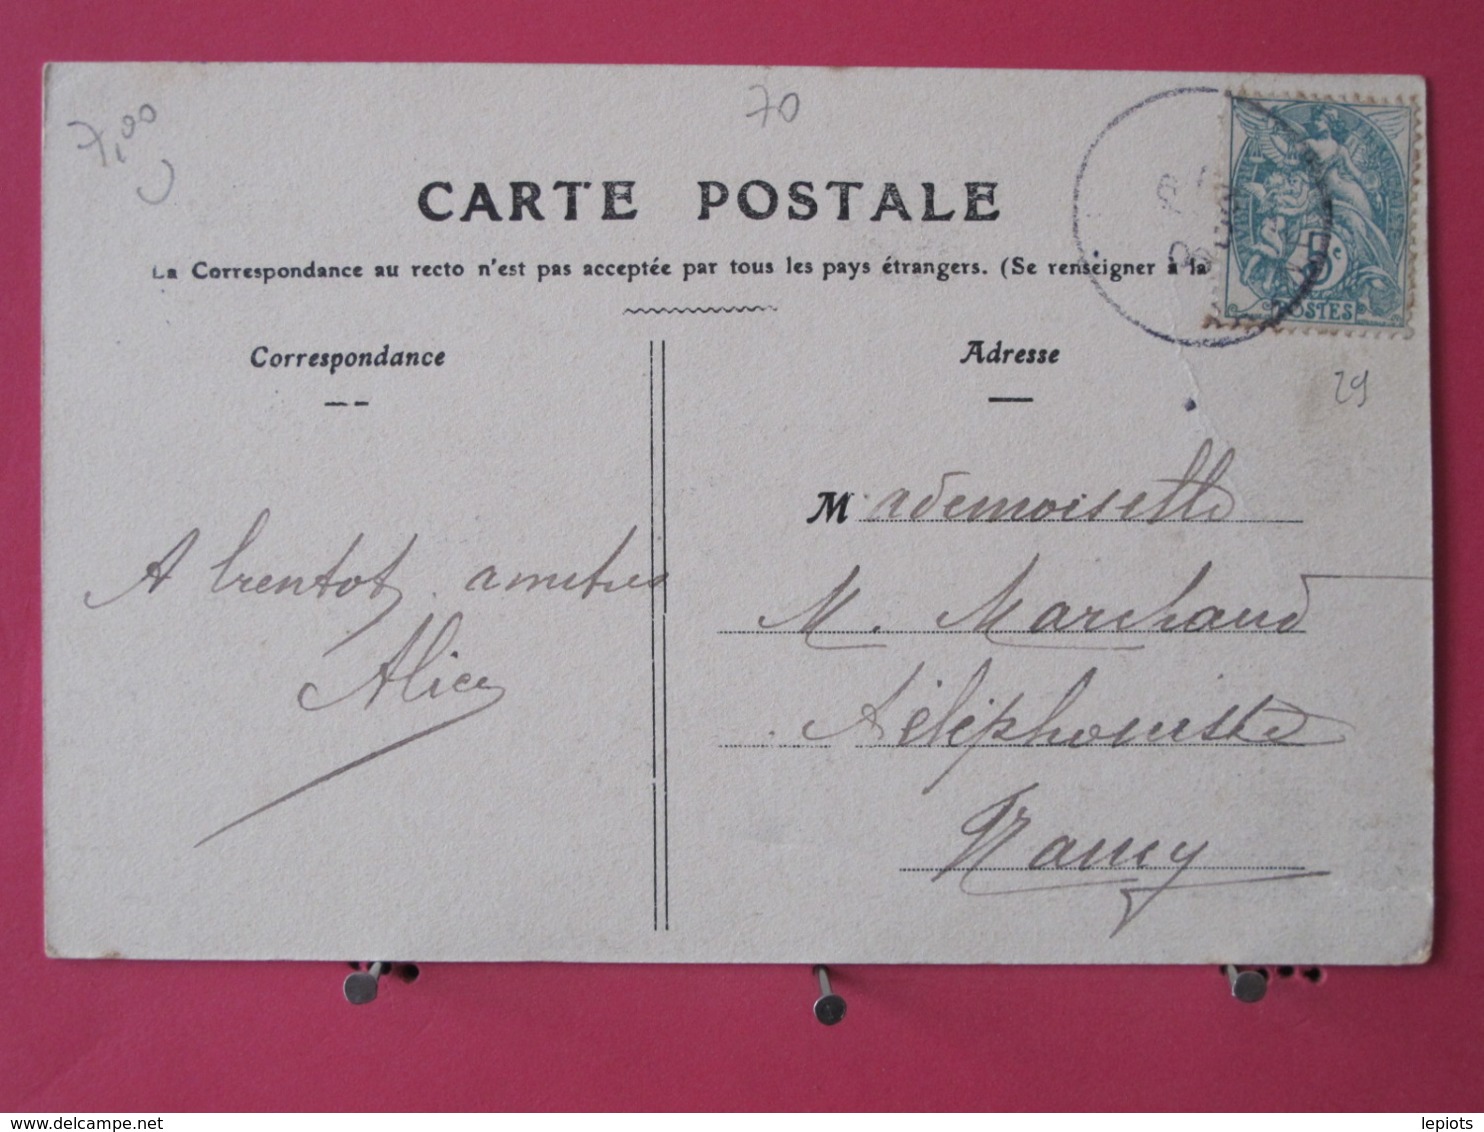 7,00
70
CARTE POSTALE
La Correspondance au recto n'est pas acceptée par tous les pays étrangers. (Se renseigner à la
Correspondance
Adresse
5 c
POSTES
29
A bientot amitiés
Alice
Mademoiselle
M. Marchand
Téléphoniste
Nancy
lepiots
delcampe.net